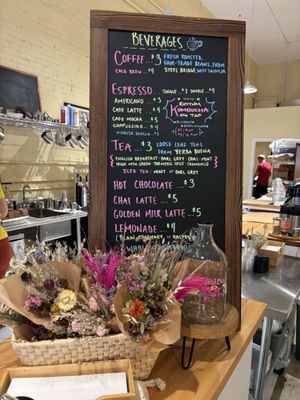 BEVERAGES
COFFEE $3
FRESH ROAST,
FAIR-TRADE BEANS, FROM
STEEL BRIDGE, WEST SAYVILLE
COLD BREW $4
ESPRESSO
SINGLE $3 DOUBLE $4
AMERICANO $3
CAFE LATTE $4
CAFE MOCHA $5
CAPPUCCINO $4
KOMBUCHA
ON TAP
TEA $3
LOOSE LEAF TEAS
FROM YERBA BUENA
ENGLISH BREAKFAST EARL GREY CHAI MINT
ICED TEA: MINT OR EARL GREY
HOT CHOCOLATE $3
CHAI LATTE $5
GOLDEN MILK LATTE $5
LEMONADE $4